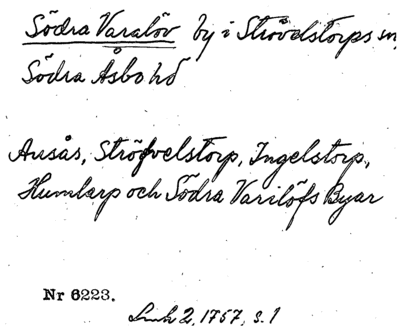 Södra Varalöv by i Strövelstorps sn,
Södra Åsbo hd
Ausås, Ströfvelstorp, Ingelstorp,
Humlarp och Södra Varilöfs Byar
Nr 6223.
2, 1757, s. 1